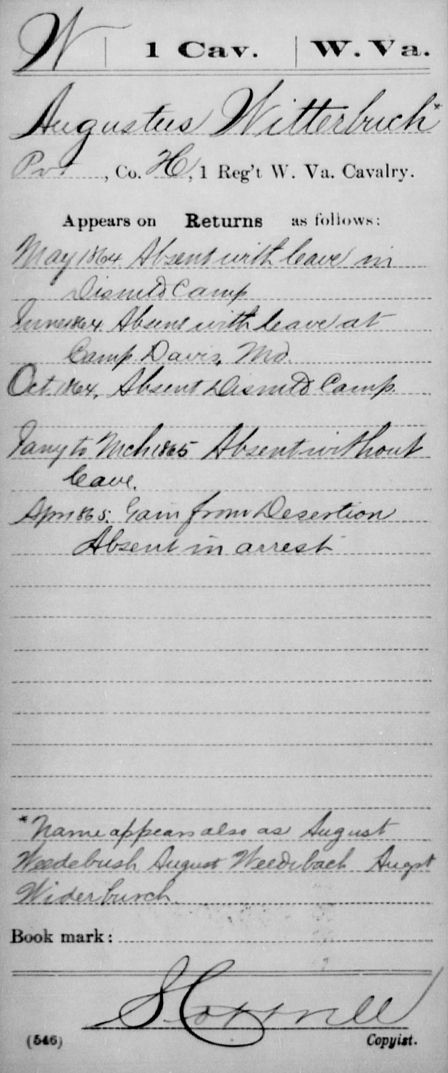 W | 1 Cav. | W. Va.
Augustus Witterbuch*
Pvt, Co. H, 1 Reg't W. Va. Cavalry.
Appears on Returns as follows:
May 1864 Absent with leave in
Dismtd Camp
June 1864 Absent with leave at
Camp Davis, Md.
Oct. 1864, Absent Dismtd Camp
Jany to Mch 1865 Absent without
leave.
Apr 1865. Gain from Desertion
Absent in arrest
*Name appears also as August
Weedebush August Weedebach Augst
Widerburch
Book mark:
(546)
Copyist.